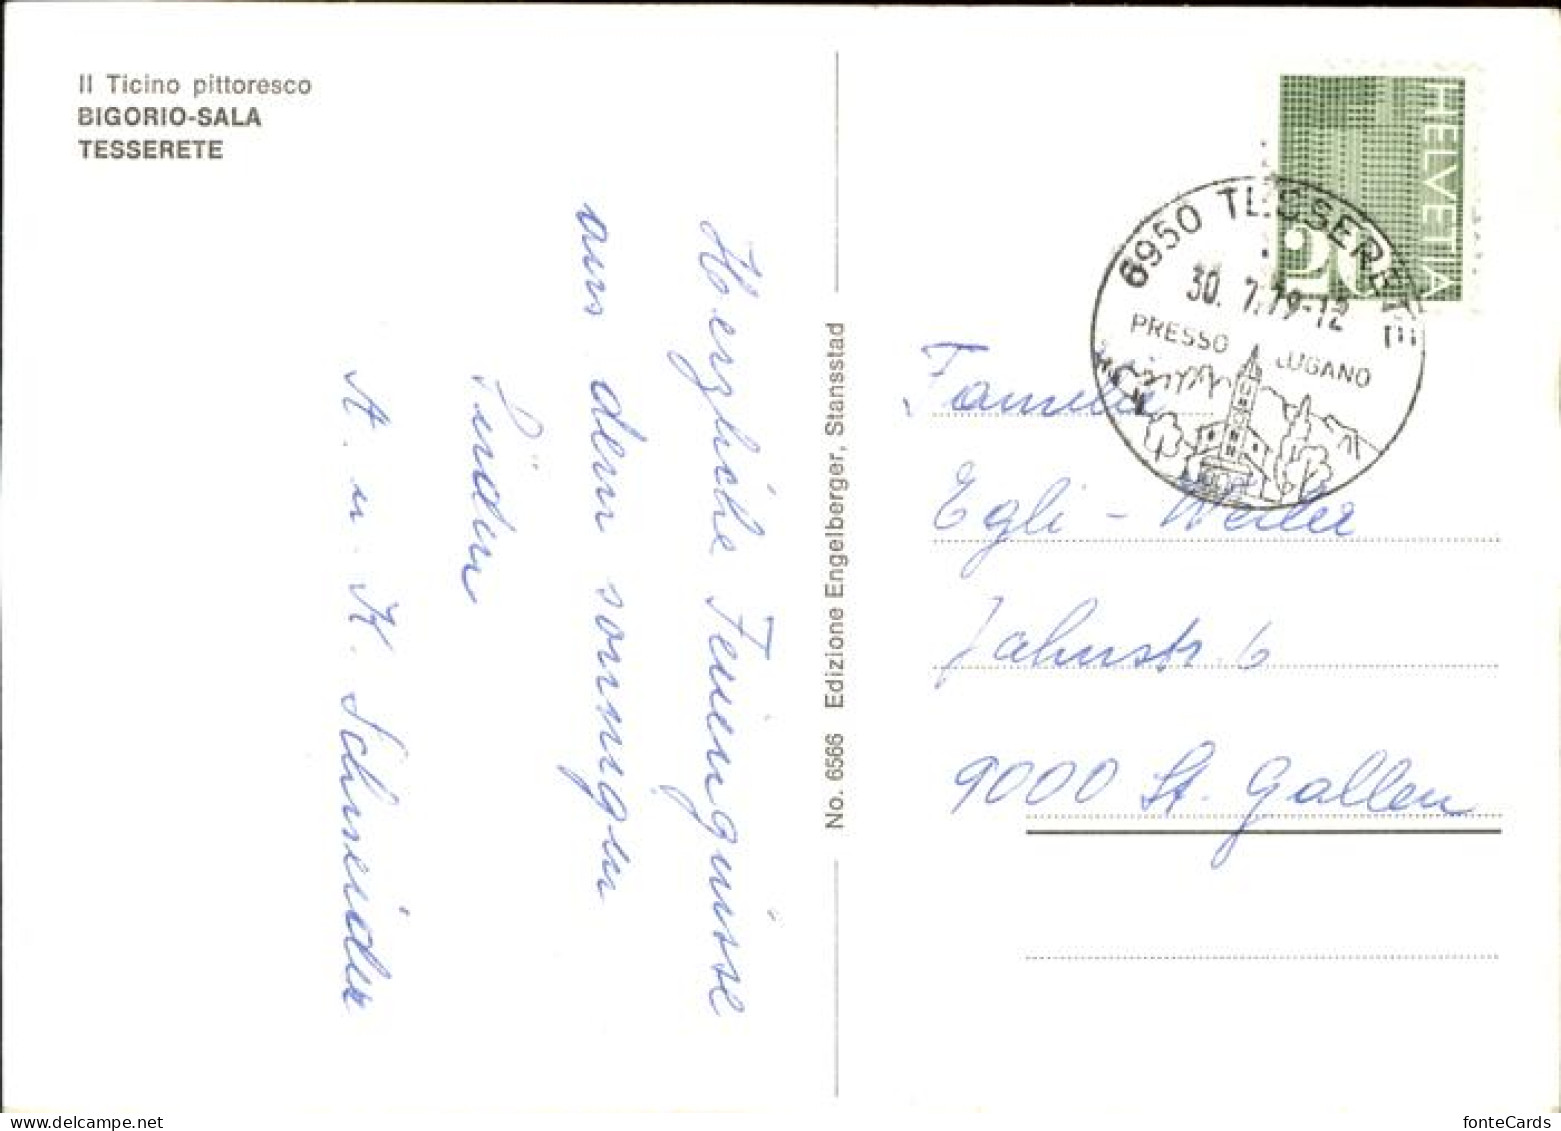 Il Ticino pittoresco
BIGORIO-SALA
TESSERETE
Herzliche Feriengrüsse
aus dem sonnigen
Süden
A. u. K. Schneider
No. 6566 Edizione Engelberger, Stansstad
HELVETIA
20
6950 TESSERETE
30.7.79-12
PRESSO LUGANO
Familie
Egli - Weiler
Jahnstr. 6
9000 St. Gallen
fonteCards